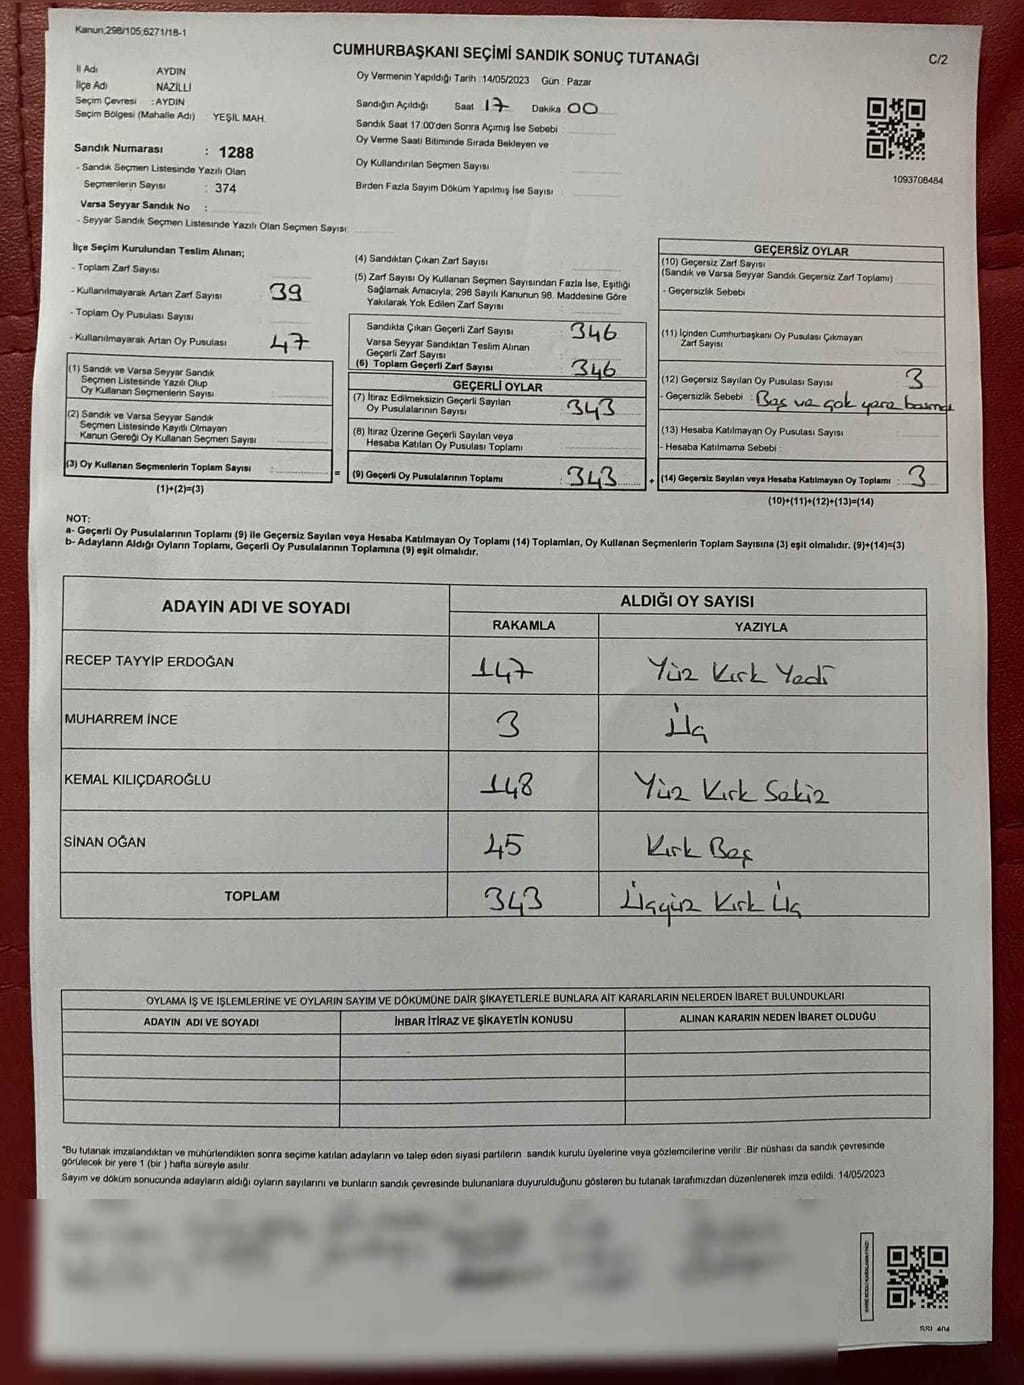 Kanun;298/105;6271/18-1
CUMHURBAŞKANI SEÇİMİ SANDIK SONUÇ TUTANAĞI
C/2
İl Adı : AYDIN
İlçe Adı : NAZİLLİ
Seçim Çevresi : AYDIN
Seçim Bölgesi (Mahalle Adı) : YEŞİL MAH.
Sandık Numarası : 1288
- Sandık Seçmen Listesinde Yazılı Olan
Seçmenlerin Sayısı : 374
Varsa Seyyar Sandık No :
- Seyyar Sandık Seçmen Listesinde Yazılı Olan Seçmen Sayısı:
Oy Vermenin Yapıldığı Tarih :14/05/2023 Gün : Pazar
Sandığın Açıldığı Saat 17 Dakika 00
Sandık Saat 17.00'den Sonra Açımış İse Sebebi
Oy Verme Saati Bitiminde Sırada Bekleyen ve
Oy Kullandırılan Seçmen Sayısı
Birden Fazla Sayım Döküm Yapılmış İse Sayısı :
1093708484
İlçe Seçim Kurulundan Teslim Alınan;
- Toplam Zarf Sayısı
- Kullanılmayarak Artan Zarf Sayısı 39
- Toplam Oy Pusulası Sayısı
- Kullanılmayarak Artan Oy Pusulası 47
(1) Sandık ve Varsa Seyyar Sandık
Seçmen Listesinde Yazılı Olup
Oy Kullanan Seçmenlerin Sayısı :
(2) Sandık ve Varsa Seyyar Sandık
Seçmen Listesinde Kayıtlı Olmayan
Kanun Gereği Oy Kullanan Seçmen Sayısı :
(3) Oy Kullanan Seçmenlerin Toplam Sayısı :
(1)+(2)=(3)
(4) Sandıktan Çıkan Zarf Sayısı
(5) Zarf Sayısı Oy Kullanan Seçmen Sayısından Fazla İse, Eşitliği
Sağlamak Amacıyla, 298 Sayılı Kanunun 98. Maddesine Göre
Yakılarak Yok Edilen Zarf Sayısı :
Sandıkta Çıkan Geçerli Zarf Sayısı : 346
Varsa Seyyar Sandıktan Teslim Alınan
Geçerli Zarf Sayısı :
(6) Toplam Geçerli Zarf Sayısı : 346
GEÇERLİ OYLAR
(7) İtiraz Edilmeksizin Geçerli Sayılan
Oy Pusulalarının Sayısı : 343
(8) İtiraz Üzerine Geçerli Sayılan veya
Hesaba Katılan Oy Pusulası Toplamı :
= (9) Geçerli Oy Pusulalarının Toplamı : 343 +
GEÇERSİZ OYLAR
(10) Geçersiz Zarf Sayısı
(Sandık ve Varsa Seyyar Sandık Geçersiz Zarf Toplamı) :
- Geçersizlik Sebebi :
(11) İçinden Cumhurbaşkanı Oy Pusulası Çıkmayan
Zarf Sayısı :
(12) Geçersiz Sayılan Oy Pusulası Sayısı : 3
- Geçersizlik Sebebi : Boş ve çok yere basma
(13) Hesaba Katılmayan Oy Pusulası Sayısı :
- Hesaba Katılmama Sebebi :
(14) Geçersiz Sayılan veya Hesaba Katılmayan Oy Toplamı : 3
(10)+(11)+(12)+(13)=(14)
NOT:
a- Geçerli Oy Pusulalarının Toplamı (9) ile Geçersiz Sayılan veya Hesaba Katılmayan Oy Toplamı (14) Toplamları, Oy Kullanan Seçmenlerin Toplam Sayısına (3) eşit olmalıdır. (9)+(14)=(3)
b- Adayların Aldığı Oyların Toplamı, Geçerli Oy Pusulalarının Toplamına (9) eşit olmalıdır.
ADAYIN ADI VE SOYADI
ALDIĞI OY SAYISI
RAKAMLA YAZIYLA
RECEP TAYYİP ERDOĞAN 147 Yüz Kırk Yedi
MUHARREM İNCE 3 Üç
KEMAL KILIÇDAROĞLU 148 Yüz Kırk Sekiz
SİNAN OĞAN 45 Kırk Beş
TOPLAM 343 Üçyüz Kırk Üç
OYLAMA İŞ VE İŞLEMLERİNE VE OYLARIN SAYIM VE DÖKÜMÜNE DAİR ŞİKAYETLERLE BUNLARA AİT KARARLARIN NELERDEN İBARET BULUNDUKLARI
ADAYIN ADI VE SOYADI İHBAR İTİRAZ VE ŞİKAYETİN KONUSU ALINAN KARARIN NEDEN İBARET OLDUĞU
*Bu tutanak imzalandıktan ve mühürlendikten sonra seçime katılan adayların ve talep eden siyasi partilerin sandık kurulu üyelerine veya gözlemcilerine verilir .Bir nüshası da sandık çevresinde
görülecek bir yere 1 (bir ) hafta süreyle asılır.
Sayım ve döküm sonucunda adayların aldığı oyların sayılarını ve bunların sandık çevresinde bulunanlara duyurulduğunu gösteren bu tutanak tarafımızdan düzenlenerek imza edildi. 14/05/2023